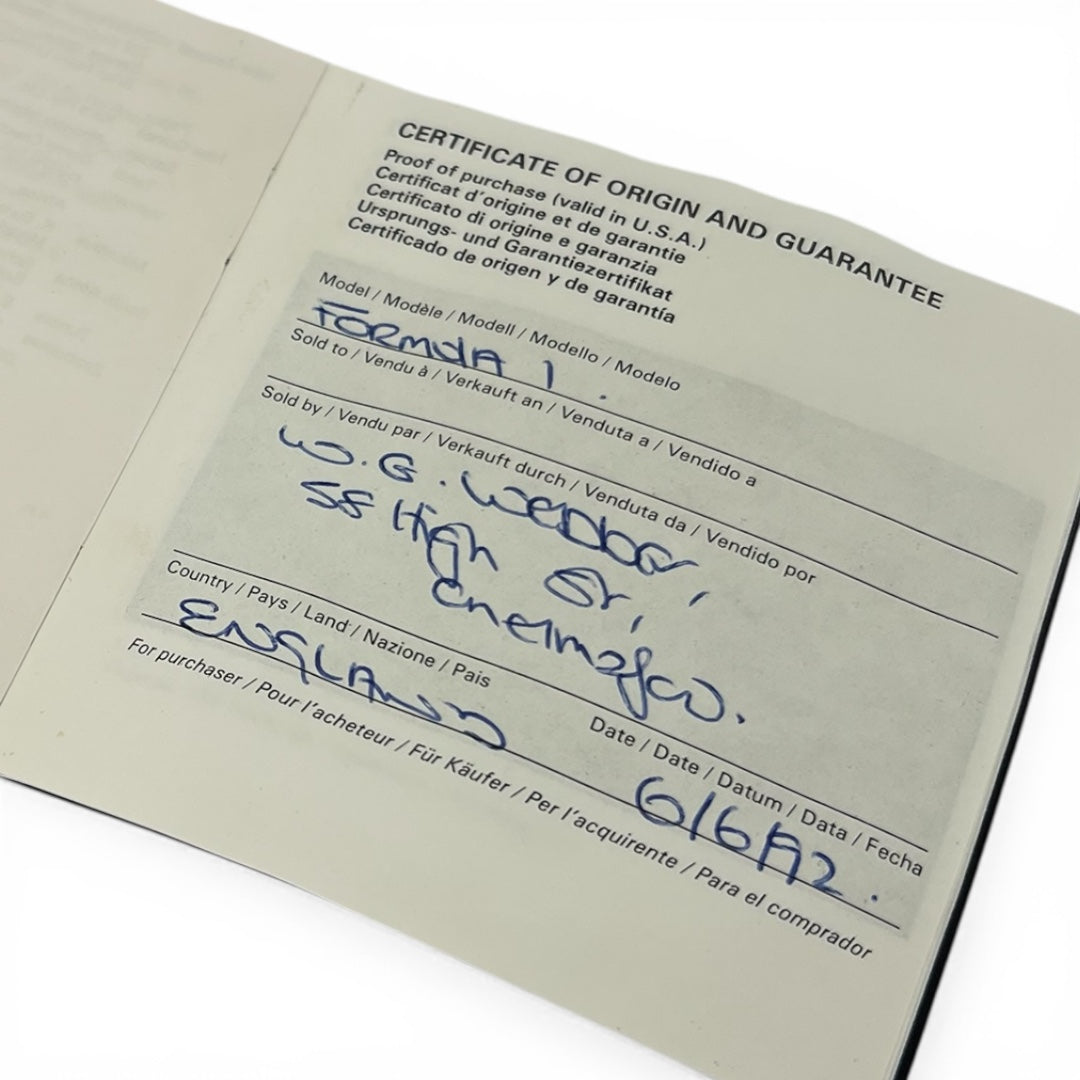 CERTIFICATE OF ORIGIN AND GUARANTEE
Proof of purchase (valid in U.S.A.)
Certificat d'origine et de garantie
Certificato di origine e garanzia
Ursprungs- und Garantiezertifikat
Certificado de origen y de garantía
Model / Modèle / Modell / Modello / Modelo
FORMULA 1
Sold to / Vendu à / Verkauft an / Venduta a / Vendido a
Sold by / Vendu par / Verkauft durch / Venduta da / Vendido por
W. G.
58 High St,
Country / Pays / Land / Nazione / Pais
ENGLAND
Date / Date / Datum / Data / Fecha
6/6/92.
For purchaser / Pour l'acheteur / Für Käufer / Per l'acquirente / Para el comprador